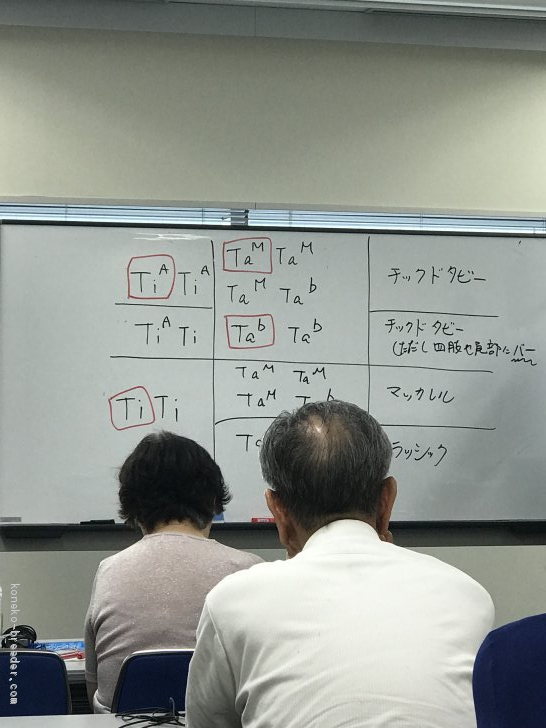 Ti^A Ti^A
Ti^A Ti
Ti Ti
Ta^M Ta^M
Ta^M Ta^b
Ta^b Ta^b
Ta^M Ta^M
Ta^M
チックドタビー
チックドタビー
(ただし四肢や尾部にバー
マッカレル
ラッシック
koneko-breeder.com